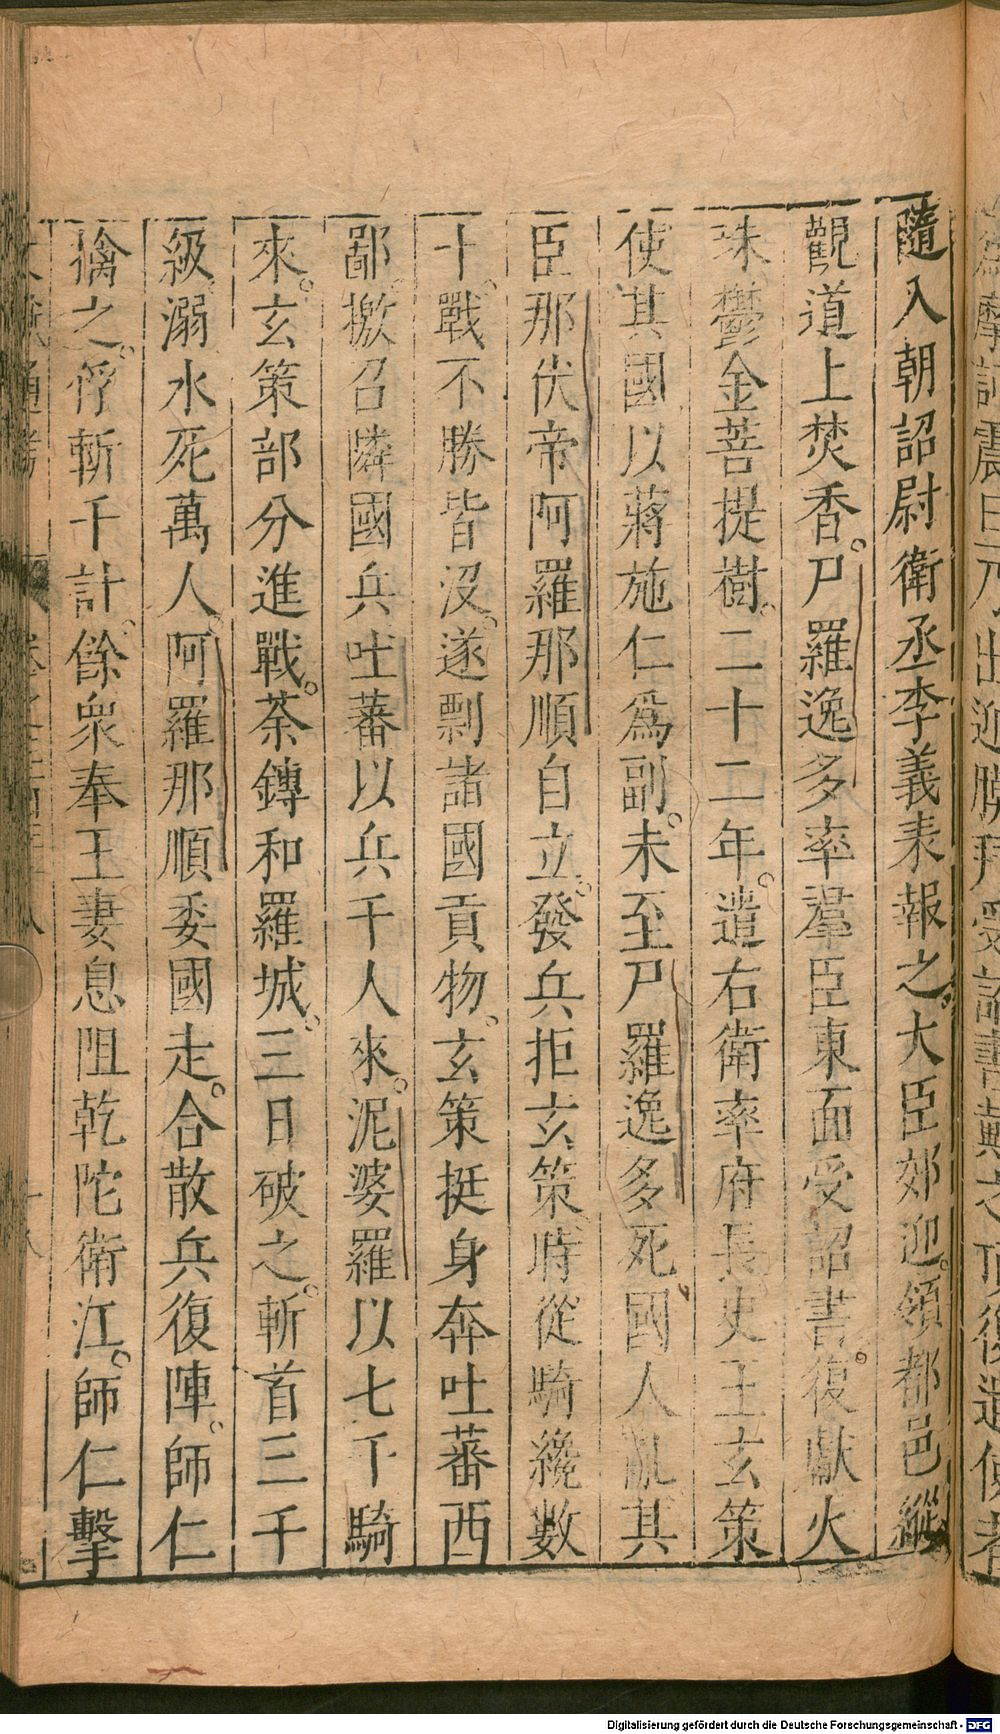 隨入朝詔尉衛丞李義表報之大臣郊迎領都邑縱
觀道上焚香尸羅逸多率羣臣東面受詔書復獻火
珠鬱金菩提樹二十二年遣右衛率府長史王玄策
使其國以蔣施仁爲副未至尸羅逸多死國人亂其
臣那伏帝阿羅那順自立發兵拒玄策時從騎纔數
十戰不勝皆沒遂剽諸國貢物玄策挺身奔吐蕃西
鄙檄召隣國兵吐蕃以兵千人來泥婆羅以七千騎
來玄策部分進戰荼鏄和羅城三日破之斬首三千
級溺水死萬人阿羅那順委國走合散兵復陣師仁
擒之俘斬千計餘衆奉王妻息阻乾陀衛江師仁擊
Digitalisierung gefördert durch die Deutsche Forschungsgemeinschaft - DFG